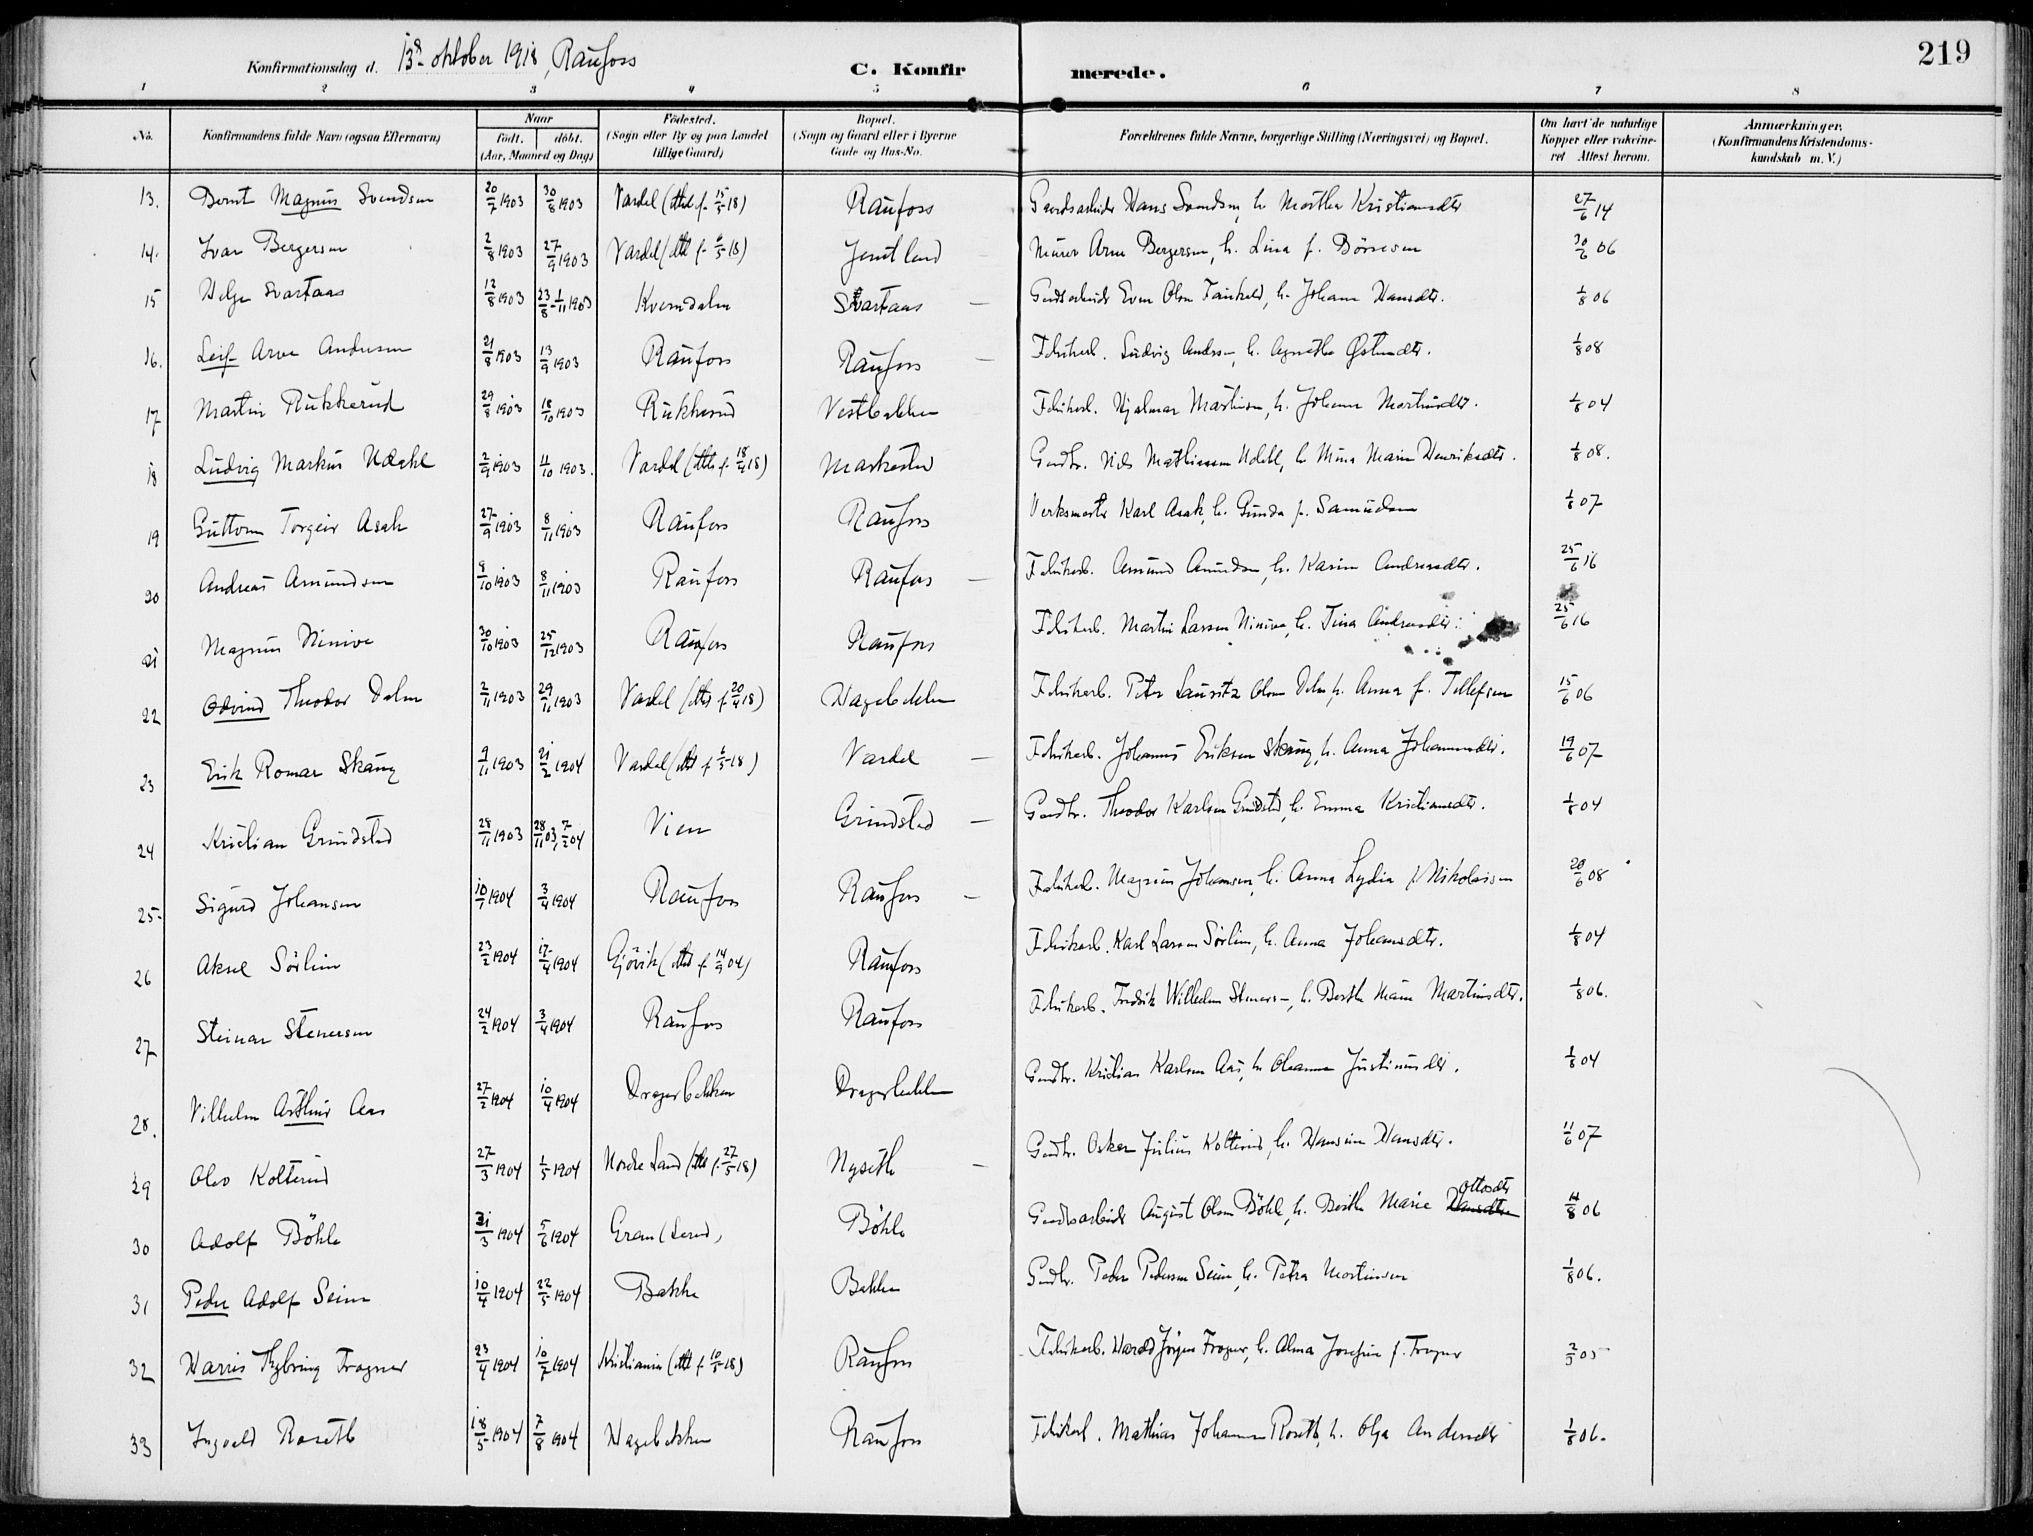 Konfirmationsdag d. 13de oktober 1918, Raufoss
C. Konfirmerede.
219
1 2 3 4 5 6 7 8
No. Konfirmandens fulde Navn (ogsaa Efternavn) Naar født. døbt. (Aar, Maaned og Dag) Fødested. (Sogn eller By og paa Landet tillige Gaard) Bopæl. (Sogn og Gaard eller i Byerne Gade og Hus-No. Forældrenes fulde Navne, borgerlige Stilling (Næringsvei) og Bopæl. Om havt de naturlige Kopper eller vakcineret Attest herom. Anmærkninger. (Konfirmandens Kristendomskundskab m. V.)
13. Bernt Magnus Svendsen 20/7 1903 30/8 1903 Vardal (attest f. 15/5 18) Raufoss Gaardsarbeider Hans Svendsen, h. Marthea Kristiansdtr 27/6 14
14. Ivar Bergersen 2/8 1903 27/9 1903 Vardal (att f. 6/5 18) Jemtland Murer Arne Bergersen, h. Lina f. Børresen 30/6 06
15 Helge Svartaas 12/8 1903 23/8 - 1/11 1903 Kverndalen Svartaas Gaardsarbeider Even Olsen h. Johanne Hansdtr. 1/8 06
16. Leif Arve Andersen 21/8 1903 13/9 1903 Raufoss Raufoss Fabrikarb. Ludvig Anderssen, h. Agnethe Østensdtr. 1/8 08
17 Martin Rukkerud 29/8 1903 18/10 1903 Rukkerud Vestbakken Fabrikarb. Hjalmar Martinsen, h. Johanne Martinsdtr. 1/8 04
18 Ludvig Markus Udahl 2/9 1903 11/10 1903. Vardal (attest f. 18/4 18) Gaardbr. Nils Mathiassen Udahl, h. Mina Marie Henriksdtr. 1/8 08.
19 Guttorm Torgeir Asak 27/9 1903 8/11 1903 Raufoss Raufoss Verksmester Karl Asak, h. Gunda f. Samuelsen 1/8 07
20 Andreas Amundsen 9/10 1903 8/11 1903 Raufoss Raufoss Fabrikarb. Amund Amundsen, h. Karine Andreasdtr. 25/6 16
21 Magnus Ninive 30/10 1903 25/12 1903 Raufoss Raufoss Fabrikarb. Martin Larsen Ninive, h. Tina Andreasdtr. 25/6 16
22 Odvind Theodor Dalen 2/11 1903 29/11 1903 Vardal (attest f. 20/4 18) Hagebakken Fabrikarb. Petter Lauritz Olsen Dalen, h. Anna f. Tellefsen 15/6 06
23 Erik Romar Skaug 9/11 1903 21/2 1904 Vardal (att f. 6/5 18) Vardal Fabrikarb. Johannes Eriksen Skaug, h. Anna Johannesdtr. 19/6 07
24 Kristian Grindstad 28/11 1903 28/11 03, 7/2 04 Vien Grindstad Gaardbr. Theodor Karlsen Grindstad, h. Emma Kristiansdtr. 1/8 04
25. Sigurd Johansen 10/1 1904 3/4 1904 Raufoss Raufoss Fabrikarb. Magnus Johansen, h. Anna Lydia f. Nikolaisen 20/6 08
26 Aksel Sørlien 23/2 1904 17/4 1904 Gjøvik (attest f. 14/9 04) Raufoss Fabrikarb. Karl Larsen Sørlien, h. Anna Johansdtr. 1/8 04
27 Steinar Stenersen 24/2 1904 3/4 1904 Raufoss Raufoss Fabrikarb. Fredrik Wilhelm Stenersen, h. Berthe Marie Martinsdtr. 1/8 06.
28. Vilhelm Arthur Aas 27/2 1904 10/4 1904 Dragerbakken Dragerbakken Gaardbr. Kristian Karlsen Aas, h. Oleanne Justinusdtr. 1/8 04
29 Olav Kolterud 27/3 1904 1/5 1904 Nordre Land (att f. 27/5 18) Nyseth Gaardbr. Oskar Julius Kolterud, h. Hansine Hansdtr. 11/6 07
30 Adolf Bøhle 31/3 1904 5/6 1904 Gran Bøhle Gaardsarbeider August Olsen Bøhle, h. Berthe Marie Ottosdtr 14/8 06
31 Peder Adolf Seim 10/4 1904 22/5 1904 Bakke Bakken Gaardbr. Peder Pedersen Seim, h. Petra Martinsen 1/8 06.
32 Harris Thybring Trogner 23/4 1904 10/7 1904 Kristiania (att f. 10/5 18) Raufoss Fabrikarb. Harald Jørgen h. Alma Josefine 2/3 05
33 Ingvald Roseth 18/5 1904 7/8 1904 Hagebakken Raufoss Fabrikarb. Mathias Johansen Roseth, h. Olga Andersdtr 1/8 06.